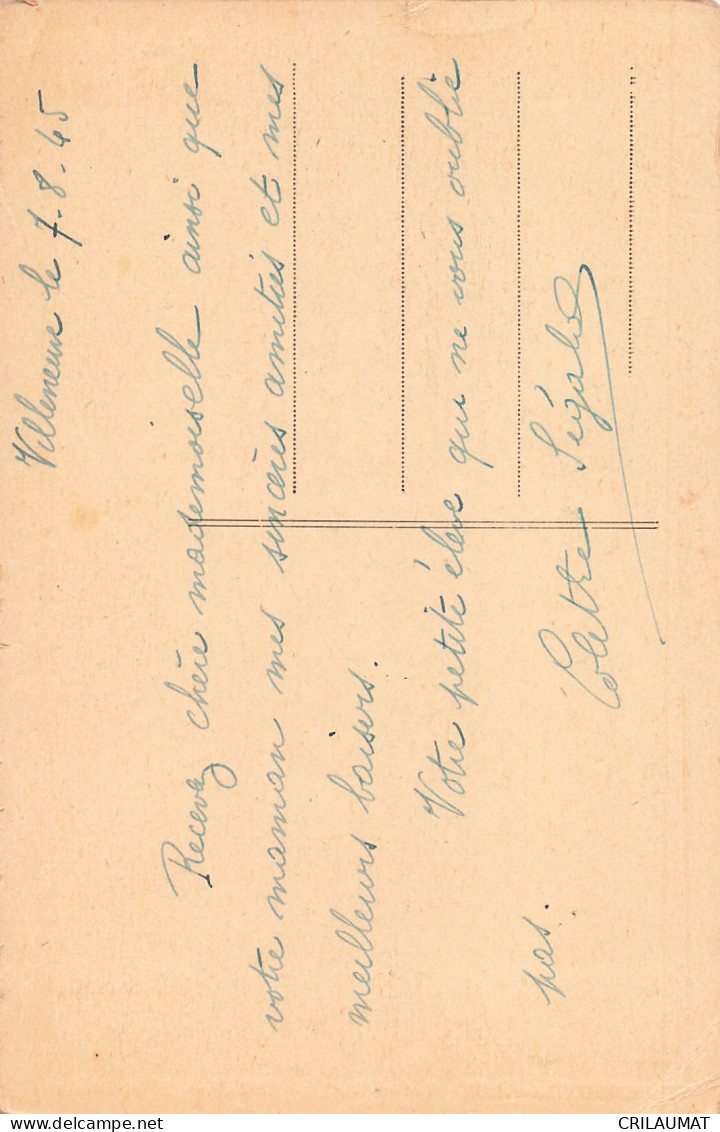 Villeneuve le 7-8-45
Recevez chère mademoiselle ainsi que
votre maman mes sincères amitiés et mes
meilleurs baisers.
Votre petite élève qui ne vous oublie
pas.
Colette
CRILAUMAT